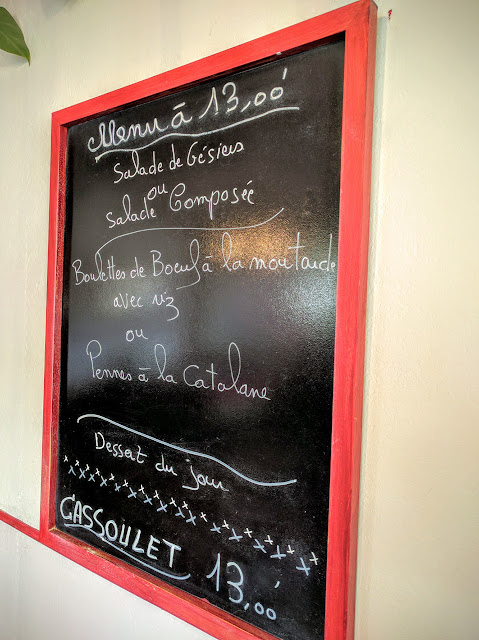 Menu à 13,00
Salade de Gésiers
ou
Salade Composée
Boulettes de Boeuf à la moutarde
avec riz
ou
Pennes à la Catalane
Dessert du jour
CASSOULET 13,00